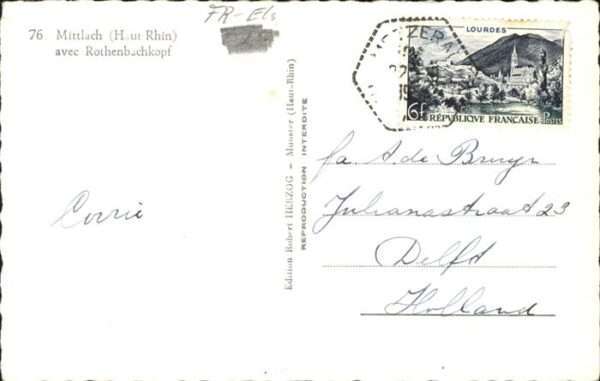 76 Mittlach (Haut Rhin)
avec Rothenbachkopf
FR-Els
LOURDES
6f RÉPUBLIQUE FRANÇAISE Postes
Edition Robert HERZOG - Munster (Haut-Rhin)
REPRODUCTION INTERDITE
Corrie
fa. A. de Bruyn
Julianastraat 23
Delft
Holland